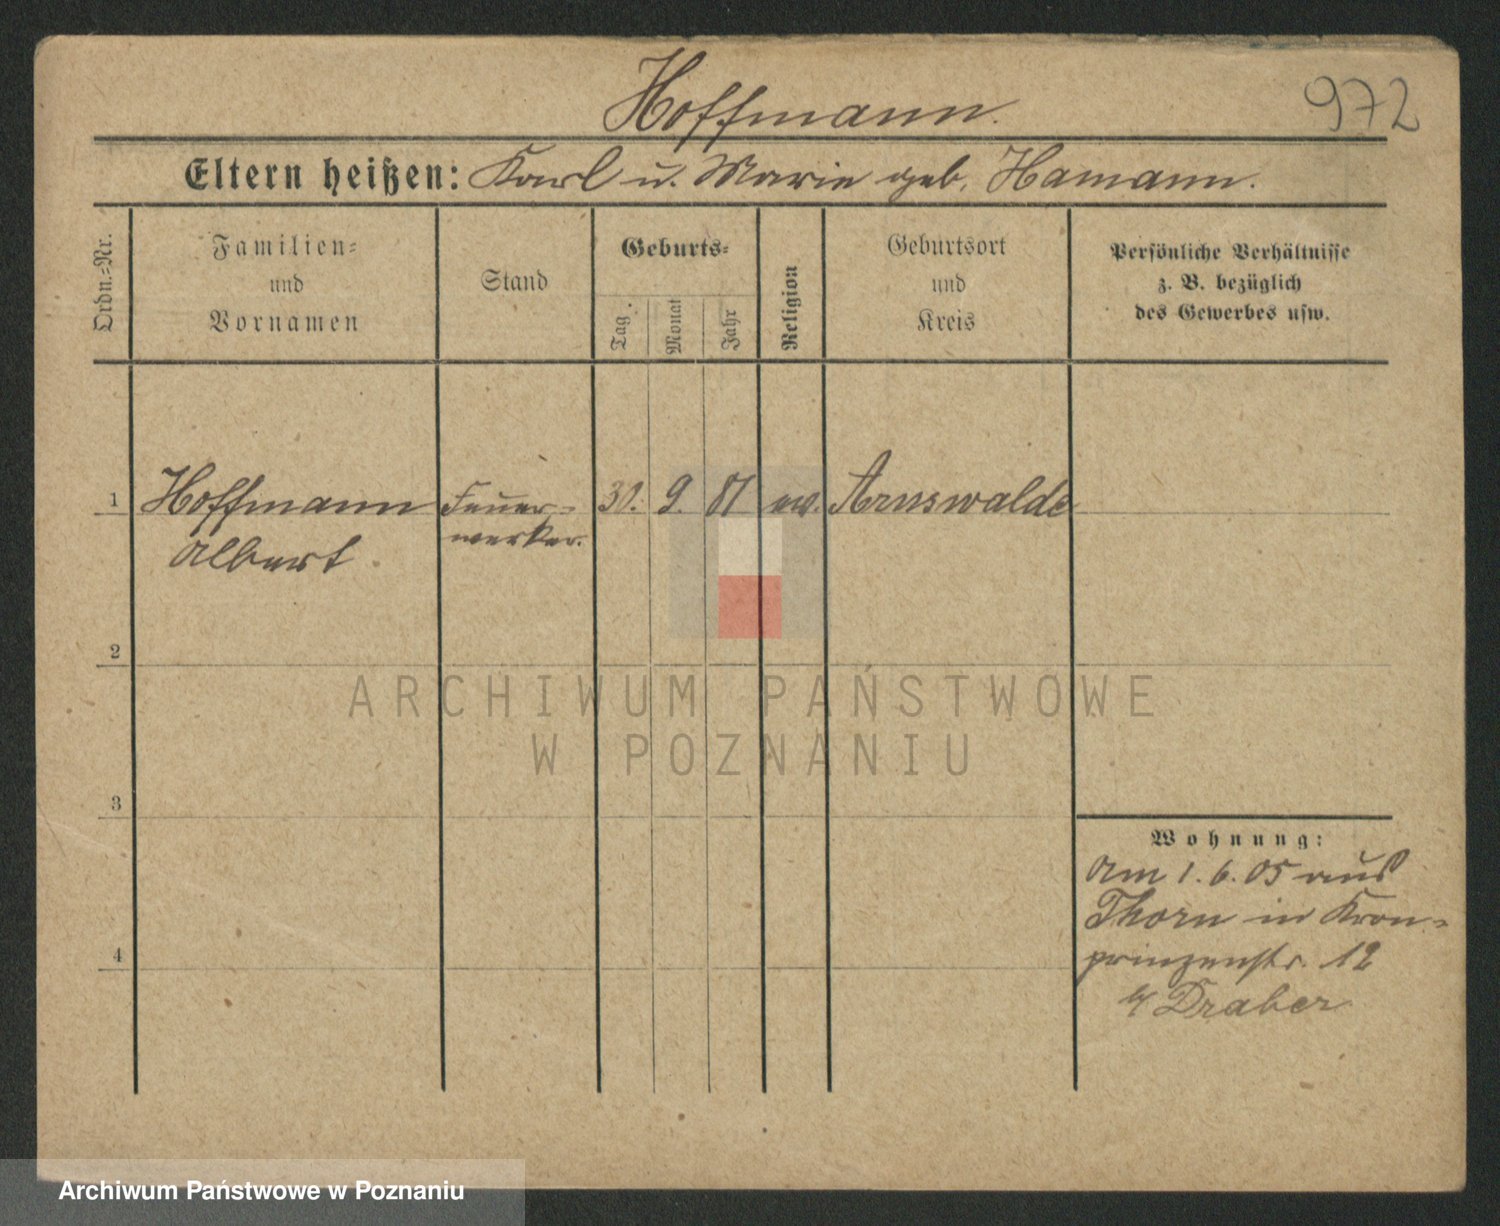 Hoffmann.
972
Eltern heißen: Karl u. Marie geb. Hamann.
Ordn.-Nr.
Familien-
und
Vornamen
Stand
Geburts-
Tag.
Monat
Jahr
Religion
Geburtsort
und
Kreis
Persönliche Verhältnisse
z. B. bezüglich
des Gewerbes usw.
1 Hoffmann Feuer- 30. 9. 81 ev. Arnswalde
Albert werker.
2
ARCHIWUM PAŃSTWOWE
W POZNANIU
3
Wohnung:
Am 1.6.05 aus
Thorn in Kron-
4
prinzenstr. 12
b/ Draber
Archiwum Państwowe w Poznaniu